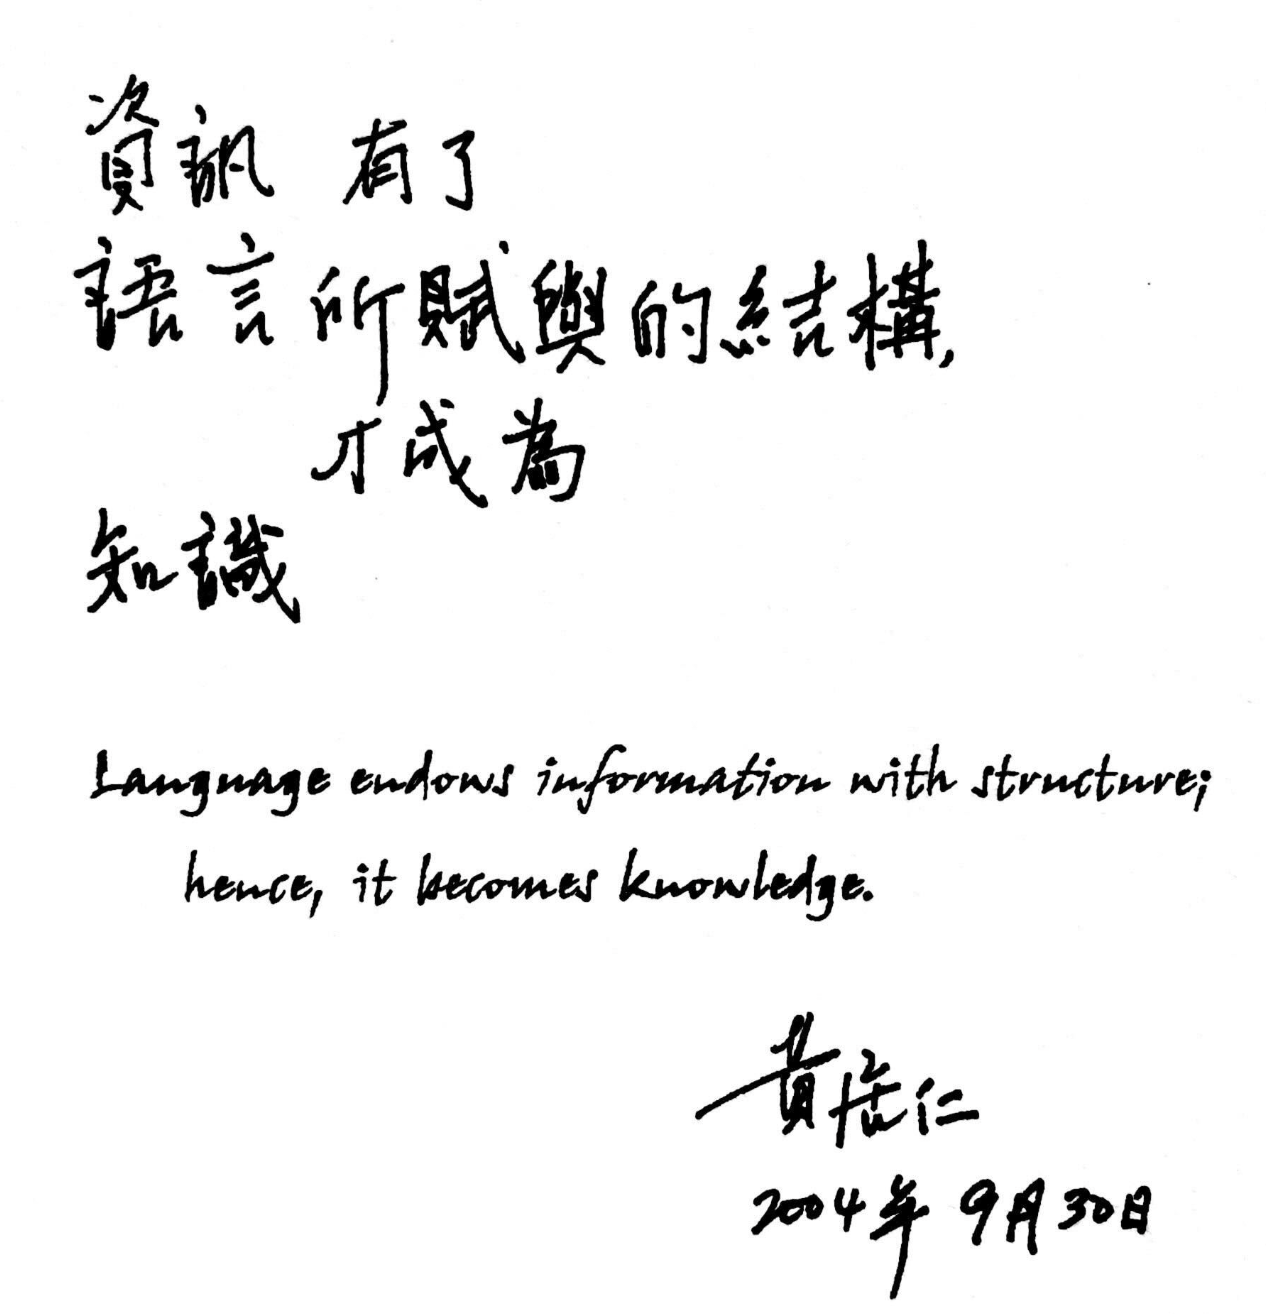 資訊 有了
語言所賦與的結構,
才成為
知識
Language endows information with structure;
hence, it becomes knowledge.
黃居仁
2004年 9月30日